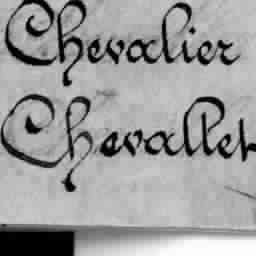 Chevalier
Chevallet